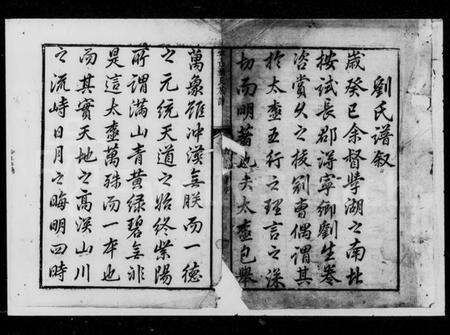 劉氏譜叙
歲癸巳余督學湖之南北
按試長郡得寧卿劉生卷
咨賞久之援劉曹偶謂其
於太極五行之理言之深
切而明著也夫太極已舉
萬象雖沖漠無朕而一德
之元統天道之始終紫陽
所謂滿山青黃綠碧無非
是這太極萬殊而一本也
而其實天地之高深山川
之流峙日月之晦明四時